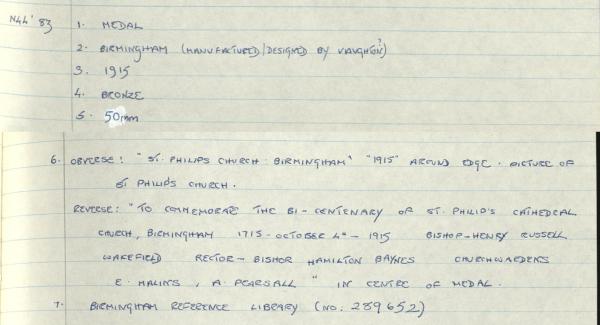 N44' 83 1. MEDAL
2. BIRMINGHAM (MANUFACTURED/DESIGNED BY VAUGHTON?)
3. 1915
4. BRONZE
5. 50mm
6. OBVERSE: "ST. PHILIPS CHURCH BIRMINGHAM" "1915" AROUND EDGE. PICTURE OF
ST PHILIPS CHURCH.
REVERSE: "TO COMMEMORATE THE BI-CENTENARY OF ST. PHILIP'S CATHEDERAL
CHURCH, BIRMINGHAM 1715-OCTOBER 4th-1915 BISHOP-HENRY RUSSELL
WAKEFIELD RECTOR-BISHOP HAMILTON BAYNES CHURCHWARDENS
E. HALINS, A. PEARSALL" IN CENTRE OF MEDAL.
7. BIRMINGHAM REFERENCE LIBRARY (NO: 289652)